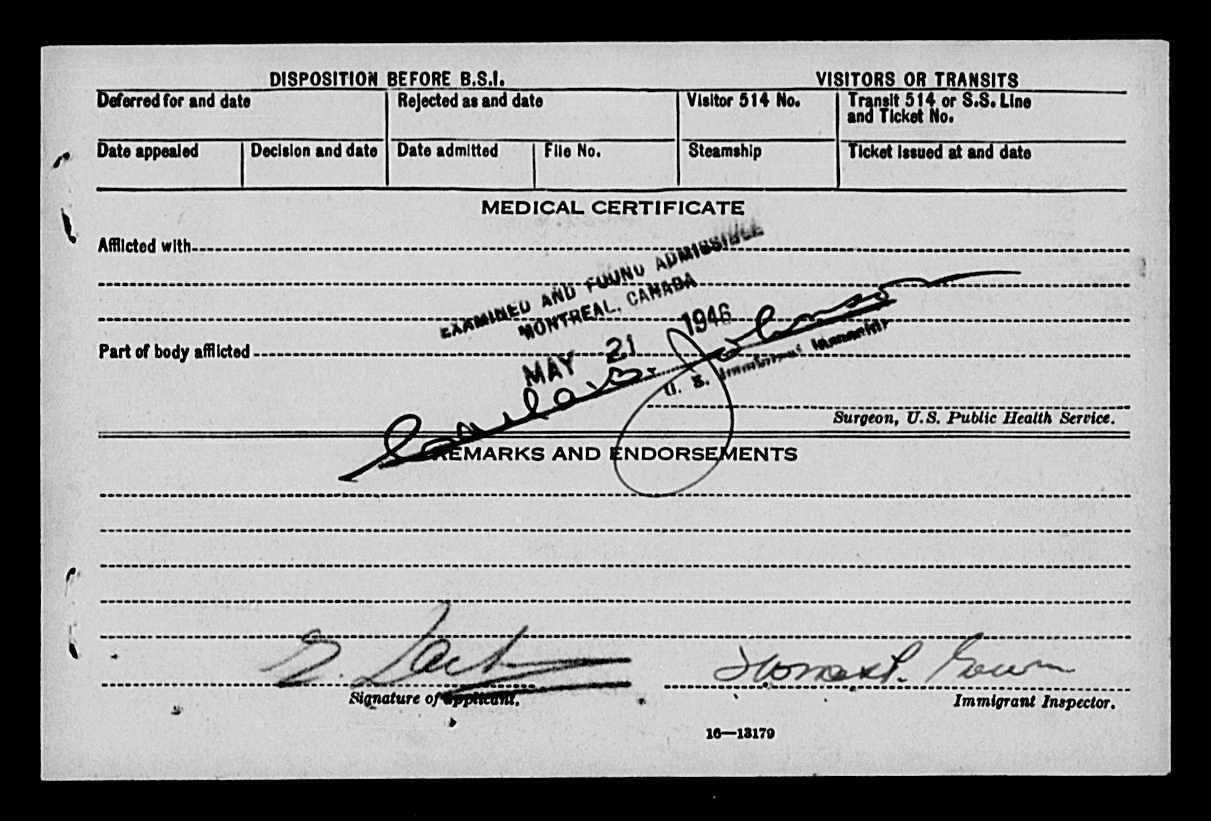 DISPOSITION BEFORE B.S.I. VISITORS OR TRANSITS
Deferred for and date Rejected as and date Visitor 514 No. Transit 514 or S.S. Line
and Ticket No.
Date appealed Decision and date Date admitted File No. Steamship Ticket issued at and date
MEDICAL CERTIFICATE
Afflicted with
EXAMINED AND FOUND ADMISSIBLE
MONTREAL, CANADA
MAY 21 1946
Part of body afflicted
U. S.
Surgeon, U.S. Public Health Service.
REMARKS AND ENDORSEMENTS
Signature of applicant.
Immigrant Inspector.
16—13179